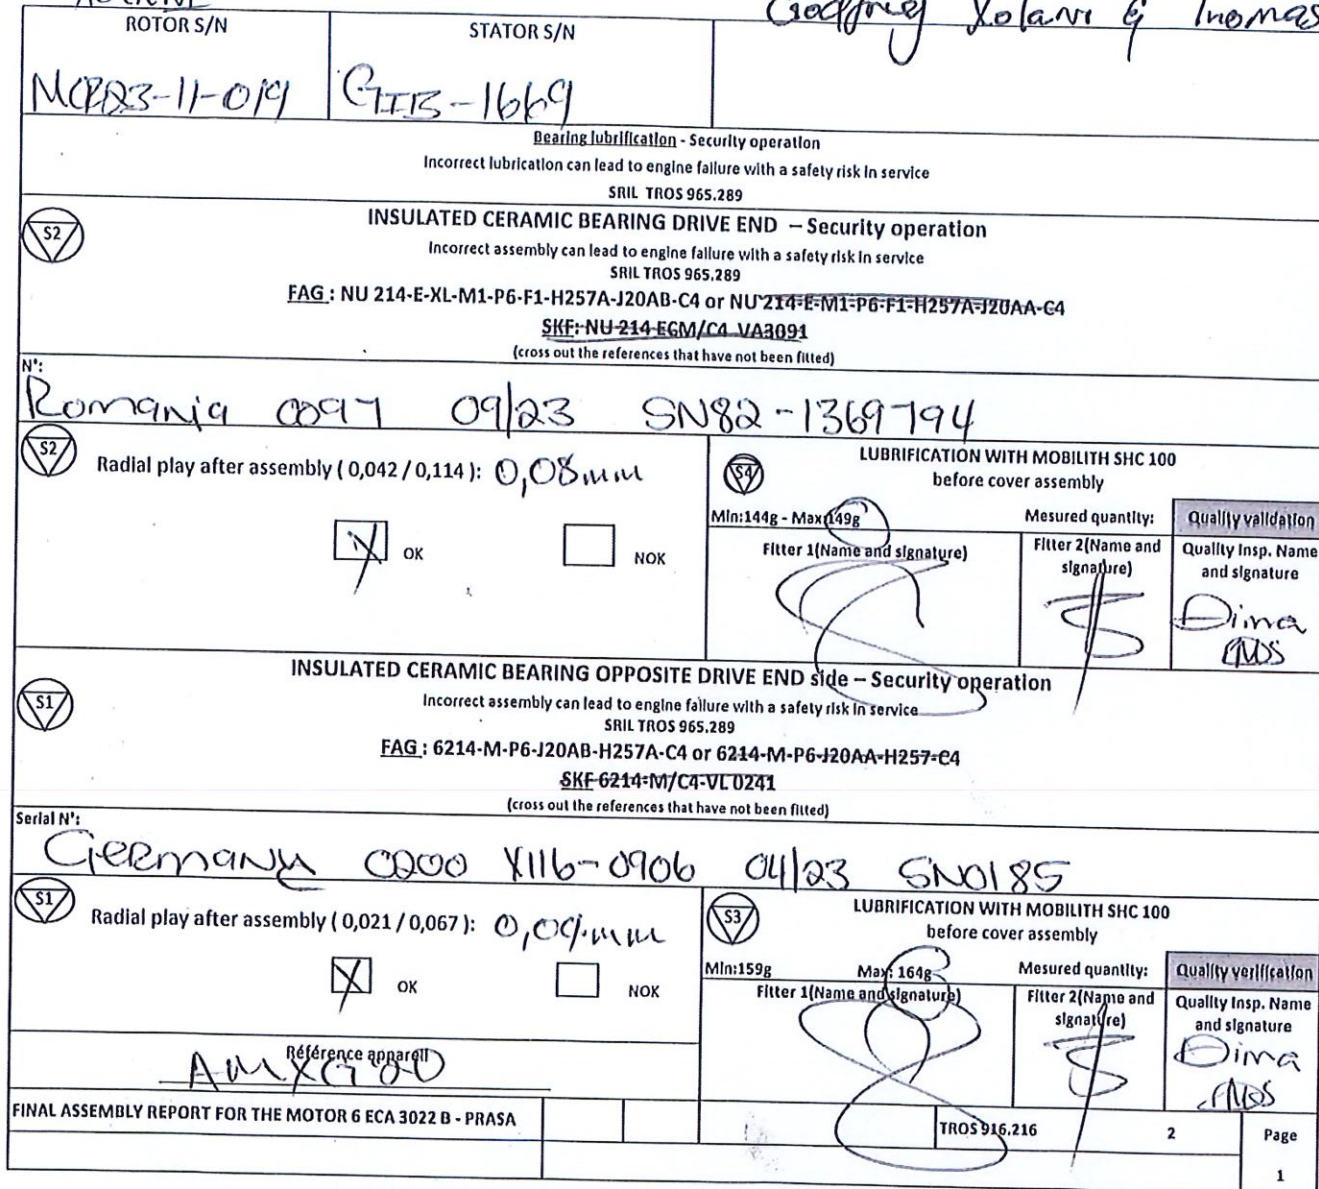 Godfrey Xolani & Thomas
ROTOR S/N
STATOR S/N
GIB-1669
Bearing lubrification - Security operation
Incorrect lubrication can lead to engine failure with a safety risk in service
SRIL TROS 965.289
S2
INSULATED CERAMIC BEARING DRIVE END – Security operation
Incorrect assembly can lead to engine failure with a safety risk in service
SRIL TROS 965.289
FAG : NU 214-E-XL-M1-P6-F1-H257A-J20AB-C4 or NU 214-E-M1-P6-F1-H257A-J20AA-C4
SKF: NU 214 EGM/C4 VA3091
(cross out the references that have not been fitted)
N°:
Romania 0097 09/23 SN82-1369794
S2
Radial play after assembly ( 0,042 / 0,114 ): 0,08mm
OK
NOK
S4
LUBRIFICATION WITH MOBILITH SHC 100
before cover assembly
Min:144g - Max:149g
Mesured quantity:
Quality validation
Fitter 1(Name and signature)
Fitter 2(Name and signature)
Quality Insp. Name and signature
Dima
INSULATED CERAMIC BEARING OPPOSITE DRIVE END side – Security operation
S1
Incorrect assembly can lead to engine failure with a safety risk in service
SRIL TROS 965.289
FAG : 6214-M-P6-J20AB-H257A-C4 or 6214-M-P6-J20AA-H257-C4
SKF 6214-M/C4-VL 0241
(cross out the references that have not been fitted)
Serial N°:
Germany 0200 X116-0906 04/23 SN0185
S1
Radial play after assembly ( 0,021 / 0,067 ): 0,04mm
OK
NOK
S3
LUBRIFICATION WITH MOBILITH SHC 100
before cover assembly
Min:159g Max: 164g
Mesured quantity:
Quality verification
Fitter 1(Name and signature)
Fitter 2(Name and signature)
Quality Insp. Name and signature
Dima
Référence appareil
FINAL ASSEMBLY REPORT FOR THE MOTOR 6 ECA 3022 B - PRASA
TROS 916.216
2
Page
1